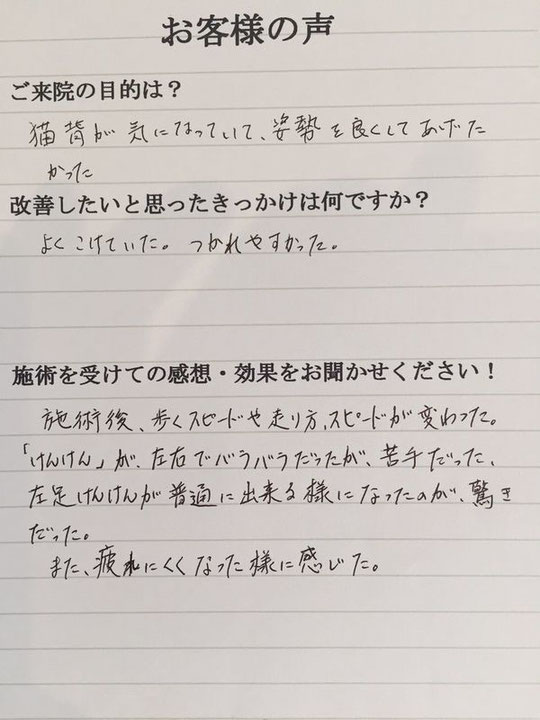 お客様の声
ご来院の目的は？
猫背が気になっていて、姿勢を良くしてあげた
かった
改善したいと思ったきっかけは何ですか？
よくこけていた。つかれやすかった。
施術を受けての感想・効果をお聞かせください！
施術後、歩くスピードや走り方、スピードが変わった。
「けんけん」が、左右でバラバラだったが、苦手だった、
左足けんけんが普通に出来る様になったのが、驚き
だった。
また、疲れにくくなった様に感じた。